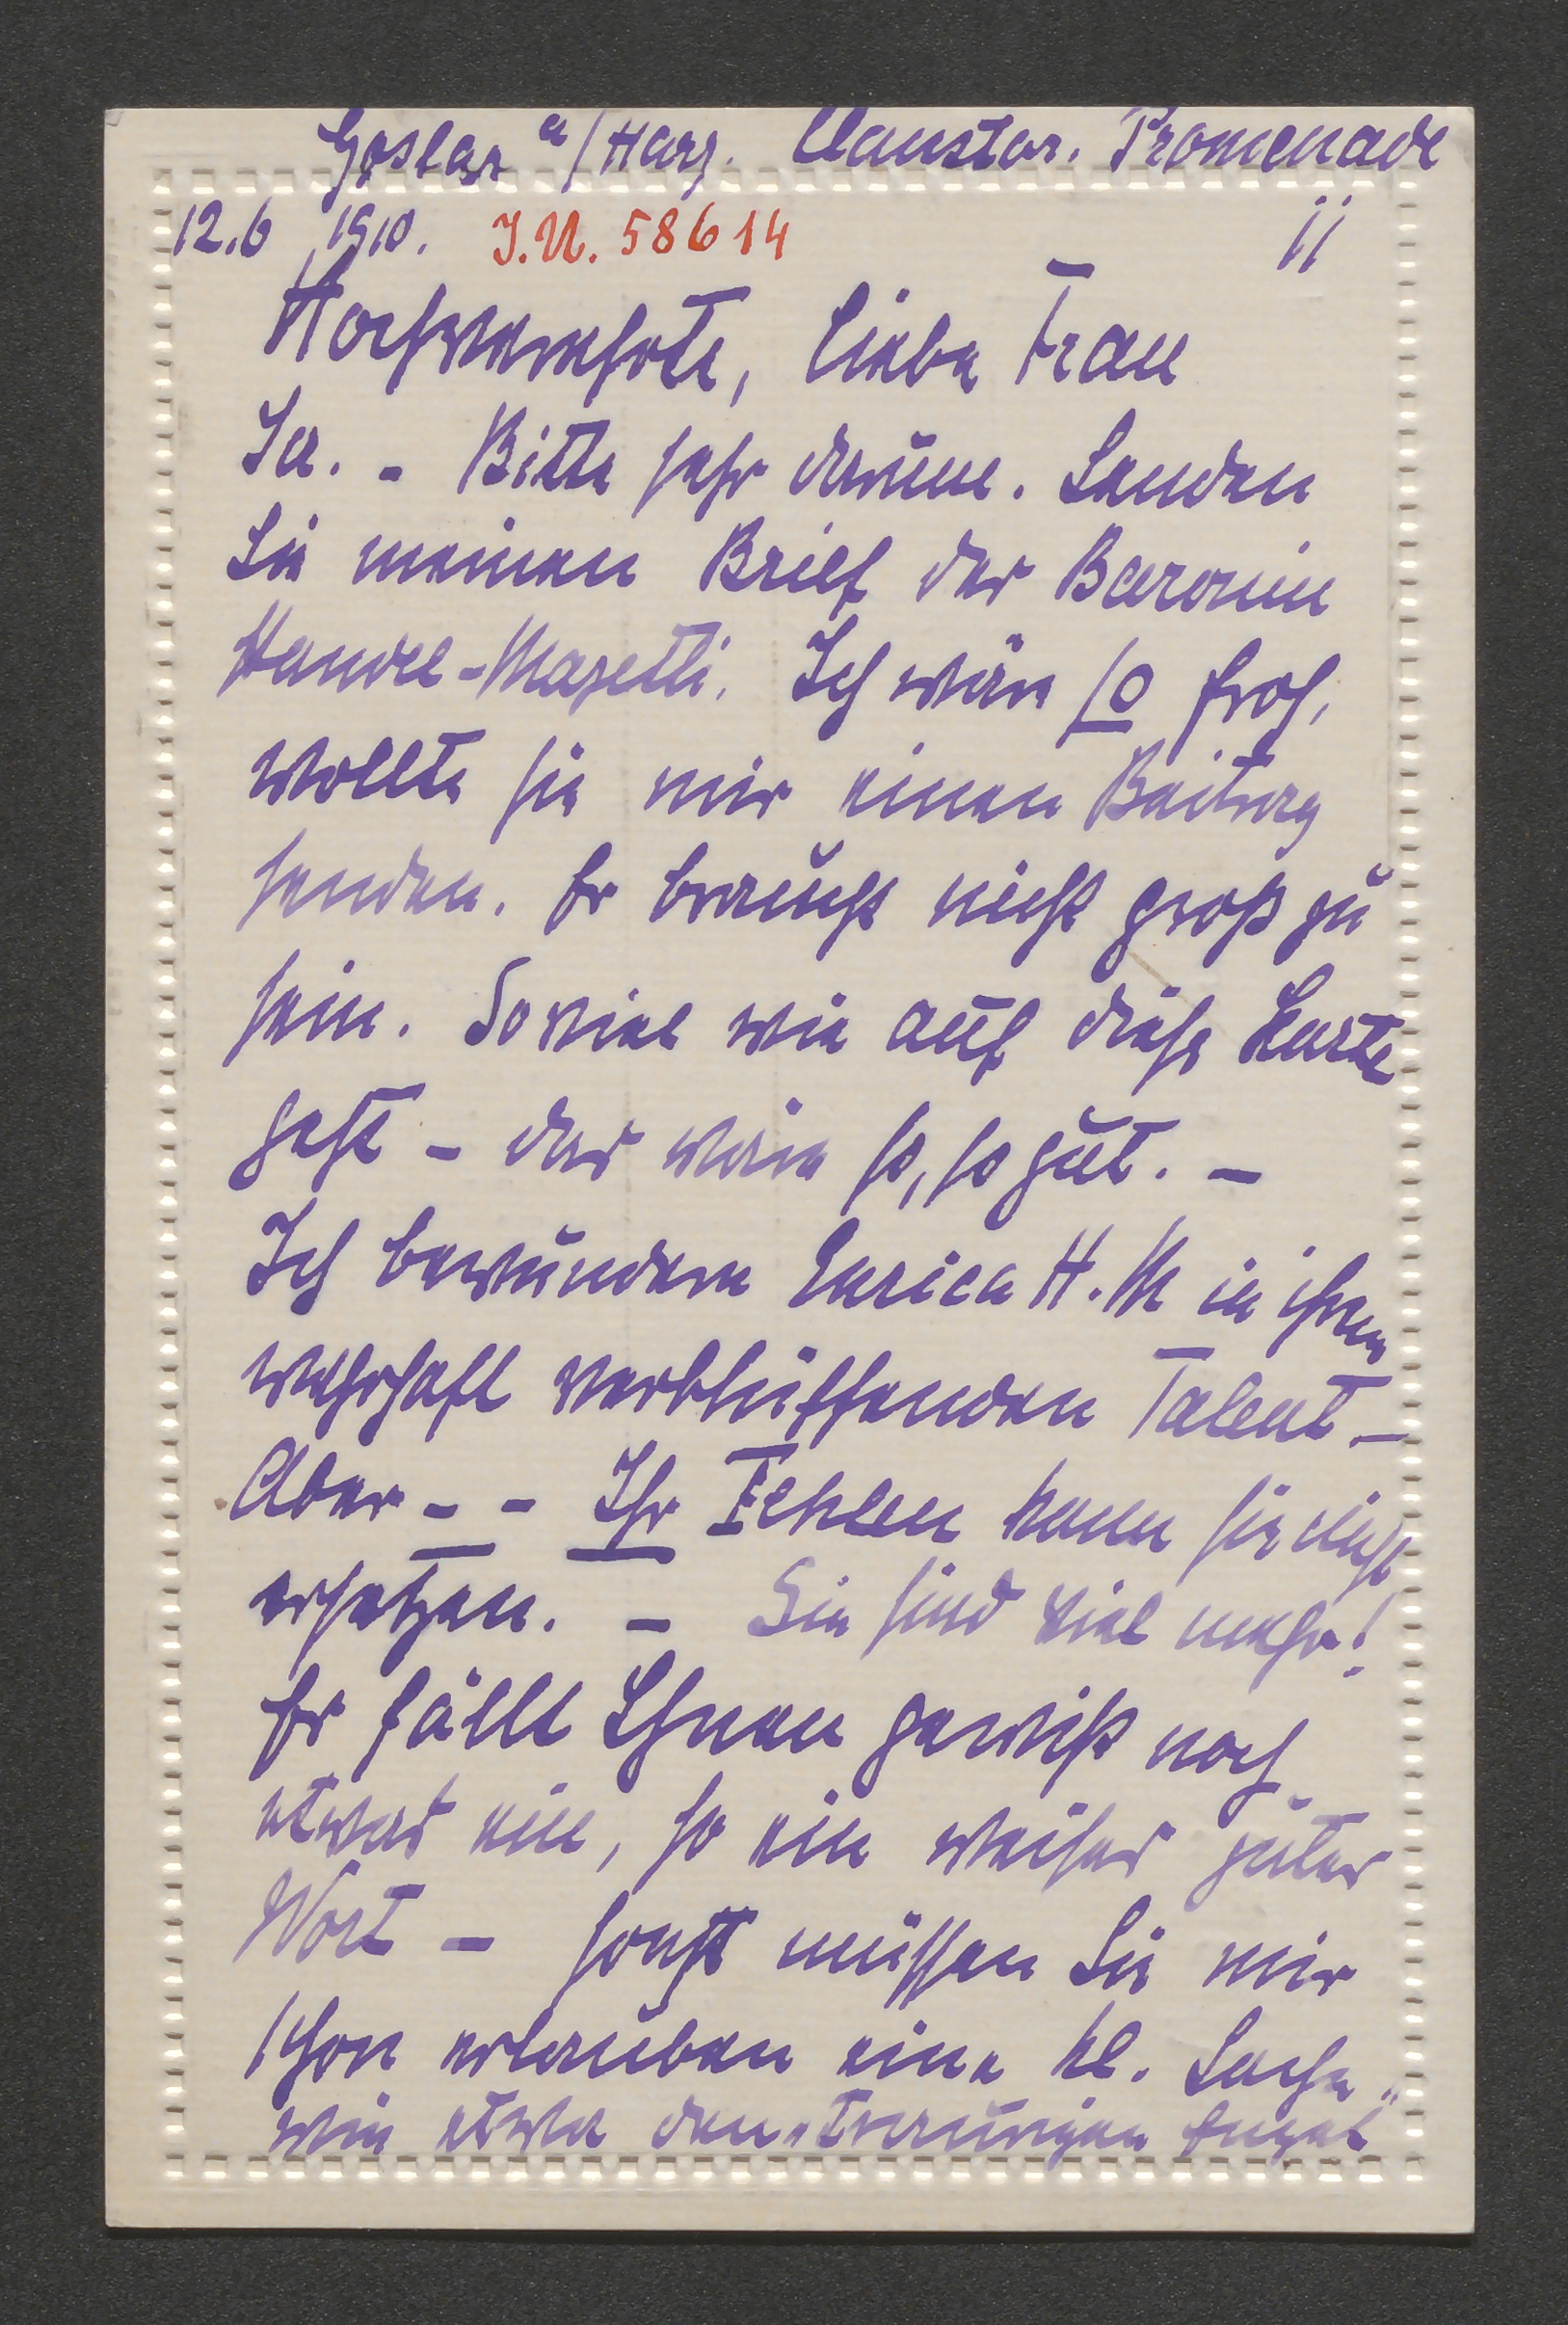 Goslar a/Harz. Claustor. Promenade
12.6 1910. J.N. 58614 11
Hochverehrte, liebe Frau
Ja. - Bitte sehr darum. Senden
Sie meinen Brief der Baronin
Handel-Mazetti. Ich wäre so froh,
wollte sie mir einen Beitrag
senden. Er braucht nicht groß zu
sein. Soviel wie auf diese Karte
geht - das wäre so, so gut. -
Ich bewundere Enrica H. M in ihrem
wahrhaft verblüffenden Talent -
Aber - - Ihr Fehlen kann sie nicht
ersetzen. - Sie sind viel mehr!
Es fällt Ihnen gewiß noch
etwas ein, so ein weises gutes
Wort - sonst müssen Sie mir
schon erlauben eine kl. Sache
wie etwa den "traurigen Engel"